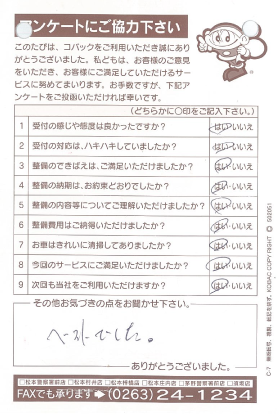 アンケートにご協力下さい
このたびは、コバックをご利用いただき誠にあり
がとうございました。私どもは、お客様のご意見
をいただき、お客様にご満足していただけるサー
ビスに努めてまいります。お手数ですが、下記ア
ンケートをご投函いただければ幸いです。
(どちらかに〇印をご記入下さい。)
1 受付の感じや態度は良かったですか? はい・いいえ
2 受付の対応は、ハキハキしていましたか? はい・いいえ
3 整備のできばえは、ご満足いただけましたか? はい・いいえ
4 整備の納期は、お約束どおりでしたか? はい・いいえ
5 整備の内容等についてご理解いただけましたか? はい・いいえ
6 整備費用はご納得いただけましたか? はい・いいえ
7 お車はきれいに清掃してありましたか? はい・いいえ
8 今回のサービスにご満足いただけましたか? はい・いいえ
9 次回も当社をご利用いただけますか? はい・いいえ
その他お気づきの点をお聞かせ下さい。
ベストでした。
ありがとうございました。
□松本警察署前店 □松本村井店 □松本梓橋店 □松本庄内店 □茅野警察署前店 □須坂店
FAXでも承ります (0263)24-1234
C-7 無断転用、複製、転記を禁ず。KOBAC COPY RIGHT © 502051